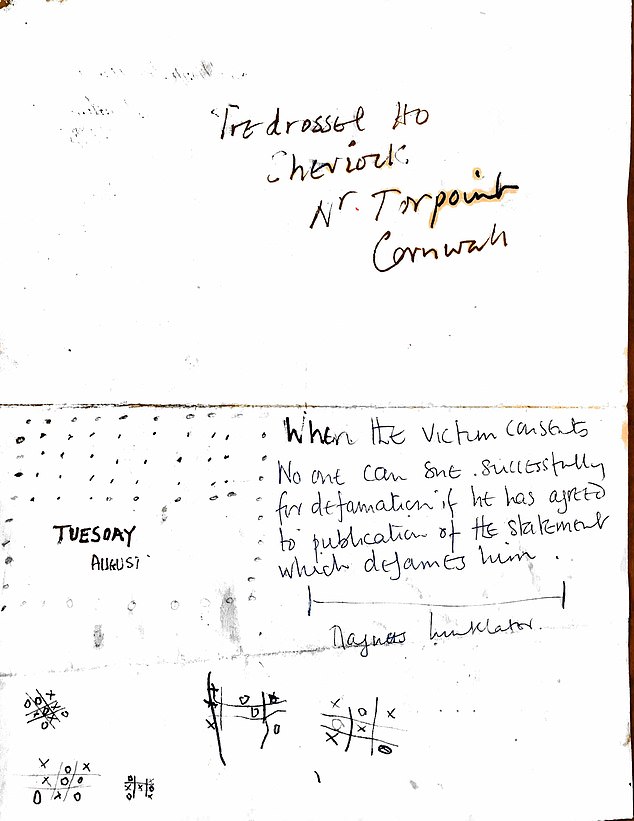 Tredrossel Ho
Sheviock
Nr. Torpoint
Cornwall
When the victim consents
No one can sue successfully
for defamation if he has agreed
to publication of the statement
which defames him.
TUESDAY
AUGUST
Magnus Linklater.